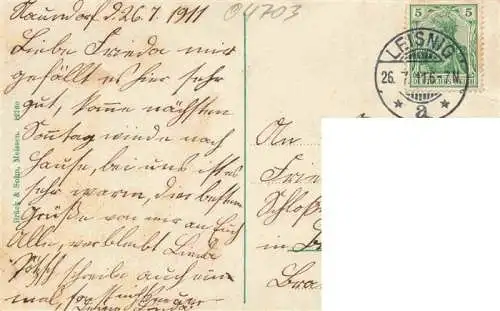 Naundorf d. 26.7.1911
04703
Liebe Frieda mir
gefällt es hier sehr
gut, komme nächsten
Sonntag wieder nach
Hause, bei uns ist es
sehr warm, die besten
Grüße von mir an Euch
Alle, verbleibt Linda
schreibe auch ein
mal,
Brück & Sohn, Meissen.
5 5
DEUTSCHES REICH
LEISNIG
26.7.11.6-7.N.
* a *
An
Frie
Schloß
in
Bra